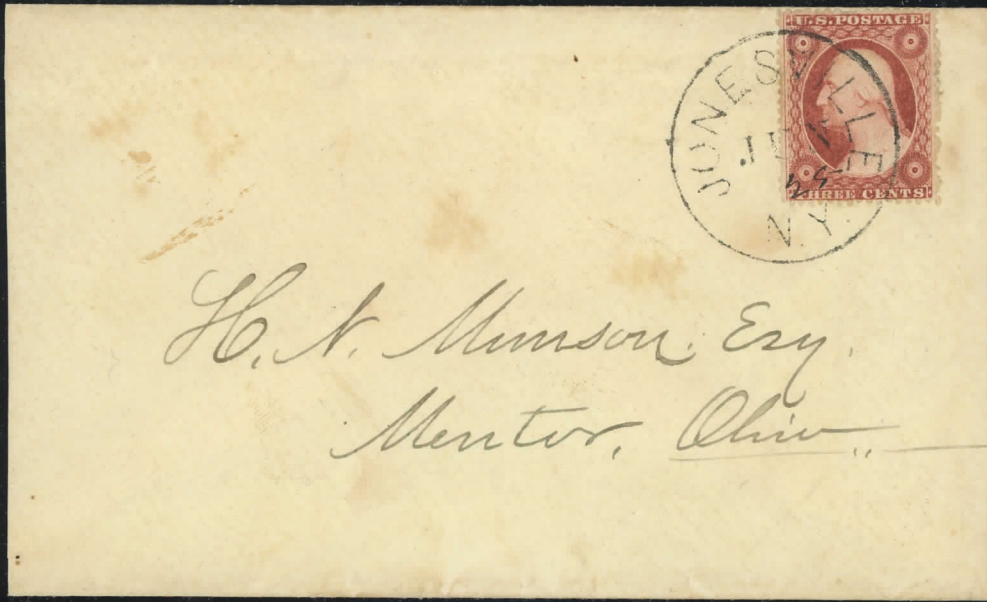 U.S. POSTAGE
THREE CENTS
JONESVILLE
N.Y.
H. N. Munson. Esq.
Mentor, Ohio